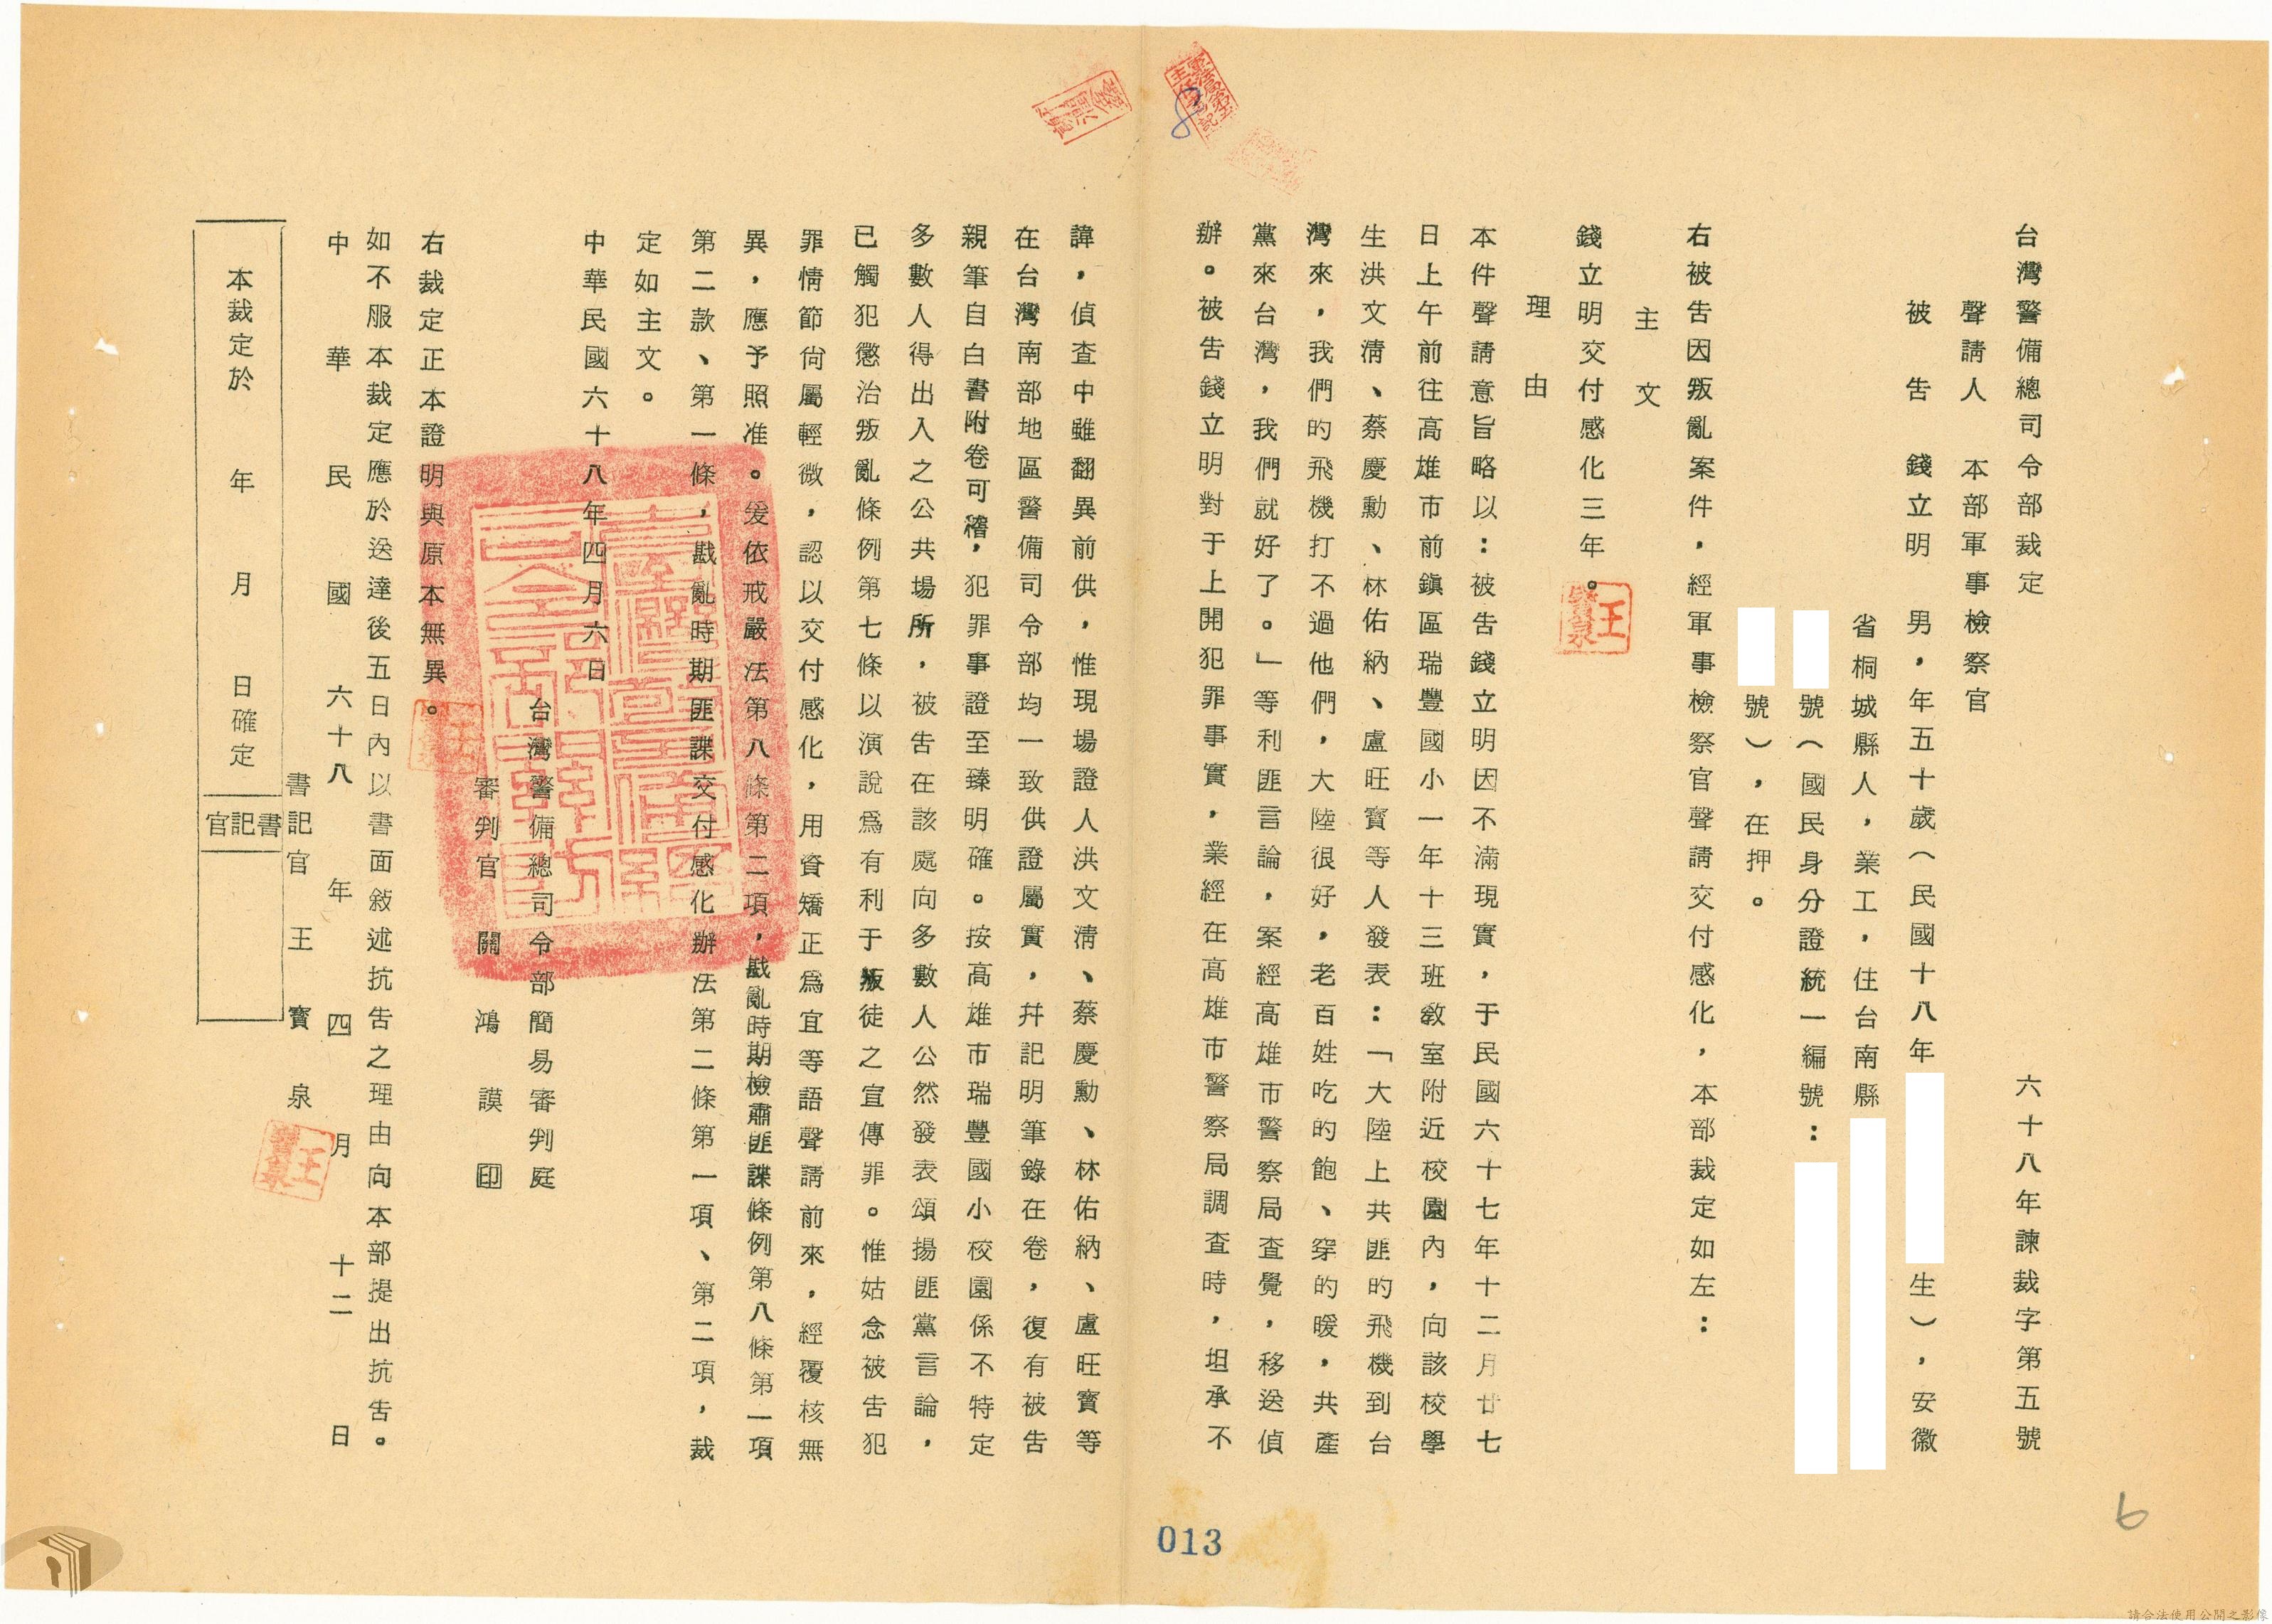 台灣警備總司令部裁定
六十八年諫裁字第五號
聲請人 本部軍事檢察官
被告 錢立明 男，年五十歲（民國十八年 生），安徽
省桐城縣人，業工，住台南縣
號（國民身分證統一編號：
號），在押。
右被告因叛亂案件，經軍事檢察官聲請交付感化，本部裁定如左：
主文
錢立明交付感化三年。
理由
本件聲請意旨略以：被告錢立明因不滿現實，于民國六十七年十二月廿七
日上午前往高雄市前鎮區瑞豐國小一年十三班教室附近校園內，向該校學
生洪文清、蔡慶勳、林佑納、盧旺寳等人發表：「大陸上共匪的飛機到台
灣來，我們的飛機打不過他們，大陸很好，老百姓吃的飽、穿的暖，共產
黨來台灣，我們就好了。」等利匪言論，案經高雄市警察局查覺，移送偵
辦。被告錢立明對于上開犯罪事實，業經在高雄市警察局調查時，坦承不
諱，偵查中雖翻異前供，惟現場證人洪文清、蔡慶勳、林佑納、盧旺寳等
在台灣南部地區警備司令部均一致供證屬實，幷記明筆錄在卷，復有被告
親筆自白書附卷可稽，犯罪事證至臻明確。按高雄市瑞豐國小校園係不特定
多數人得出入之公共場所，被告在該處向多數人公然發表頌揚匪黨言論，
已觸犯懲治叛亂條例第七條以演說為有利于叛徒之宣傳罪。惟姑念被告犯
罪情節尚屬輕微，認以交付感化，用資矯正為宜等語聲請前來，經覆核無
異，應予照准。爰依戒嚴法第八條第二項，戡亂時期檢肅匪諜條例第八條第一項
第二款、第一條，戡亂時期匪諜交付感化辦法第二條第一項、第二項，裁
定如主文。
中華民國六十八年四月六日
台灣警備總司令部簡易審判庭
審判官 關鴻謨 印
右裁定正本證明與原本無異。
如不服本裁定應於送達後五日內以書面敍述抗告之理由向本部提出抗告。
中華民國六十八年四月十二日
書記官 王寳泉
本裁定於 年 月 日確定
書記官
013
6
8
請合法使用公開之影像